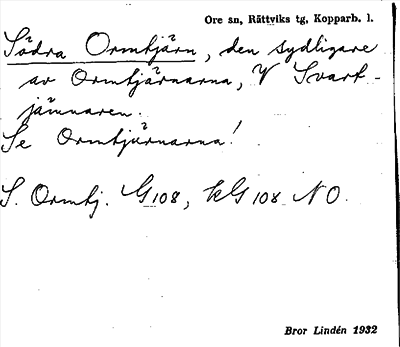 Ore sn, Rättviks tg, Kopparb. l.
Södra Ormtjärn, den sydligare
av Ormtjärnarna, V Svart-
jännaren.
Se Ormtjärnarna!
S. Ormtj. G 108, kG 108 NO.
Bror Lindén 1932